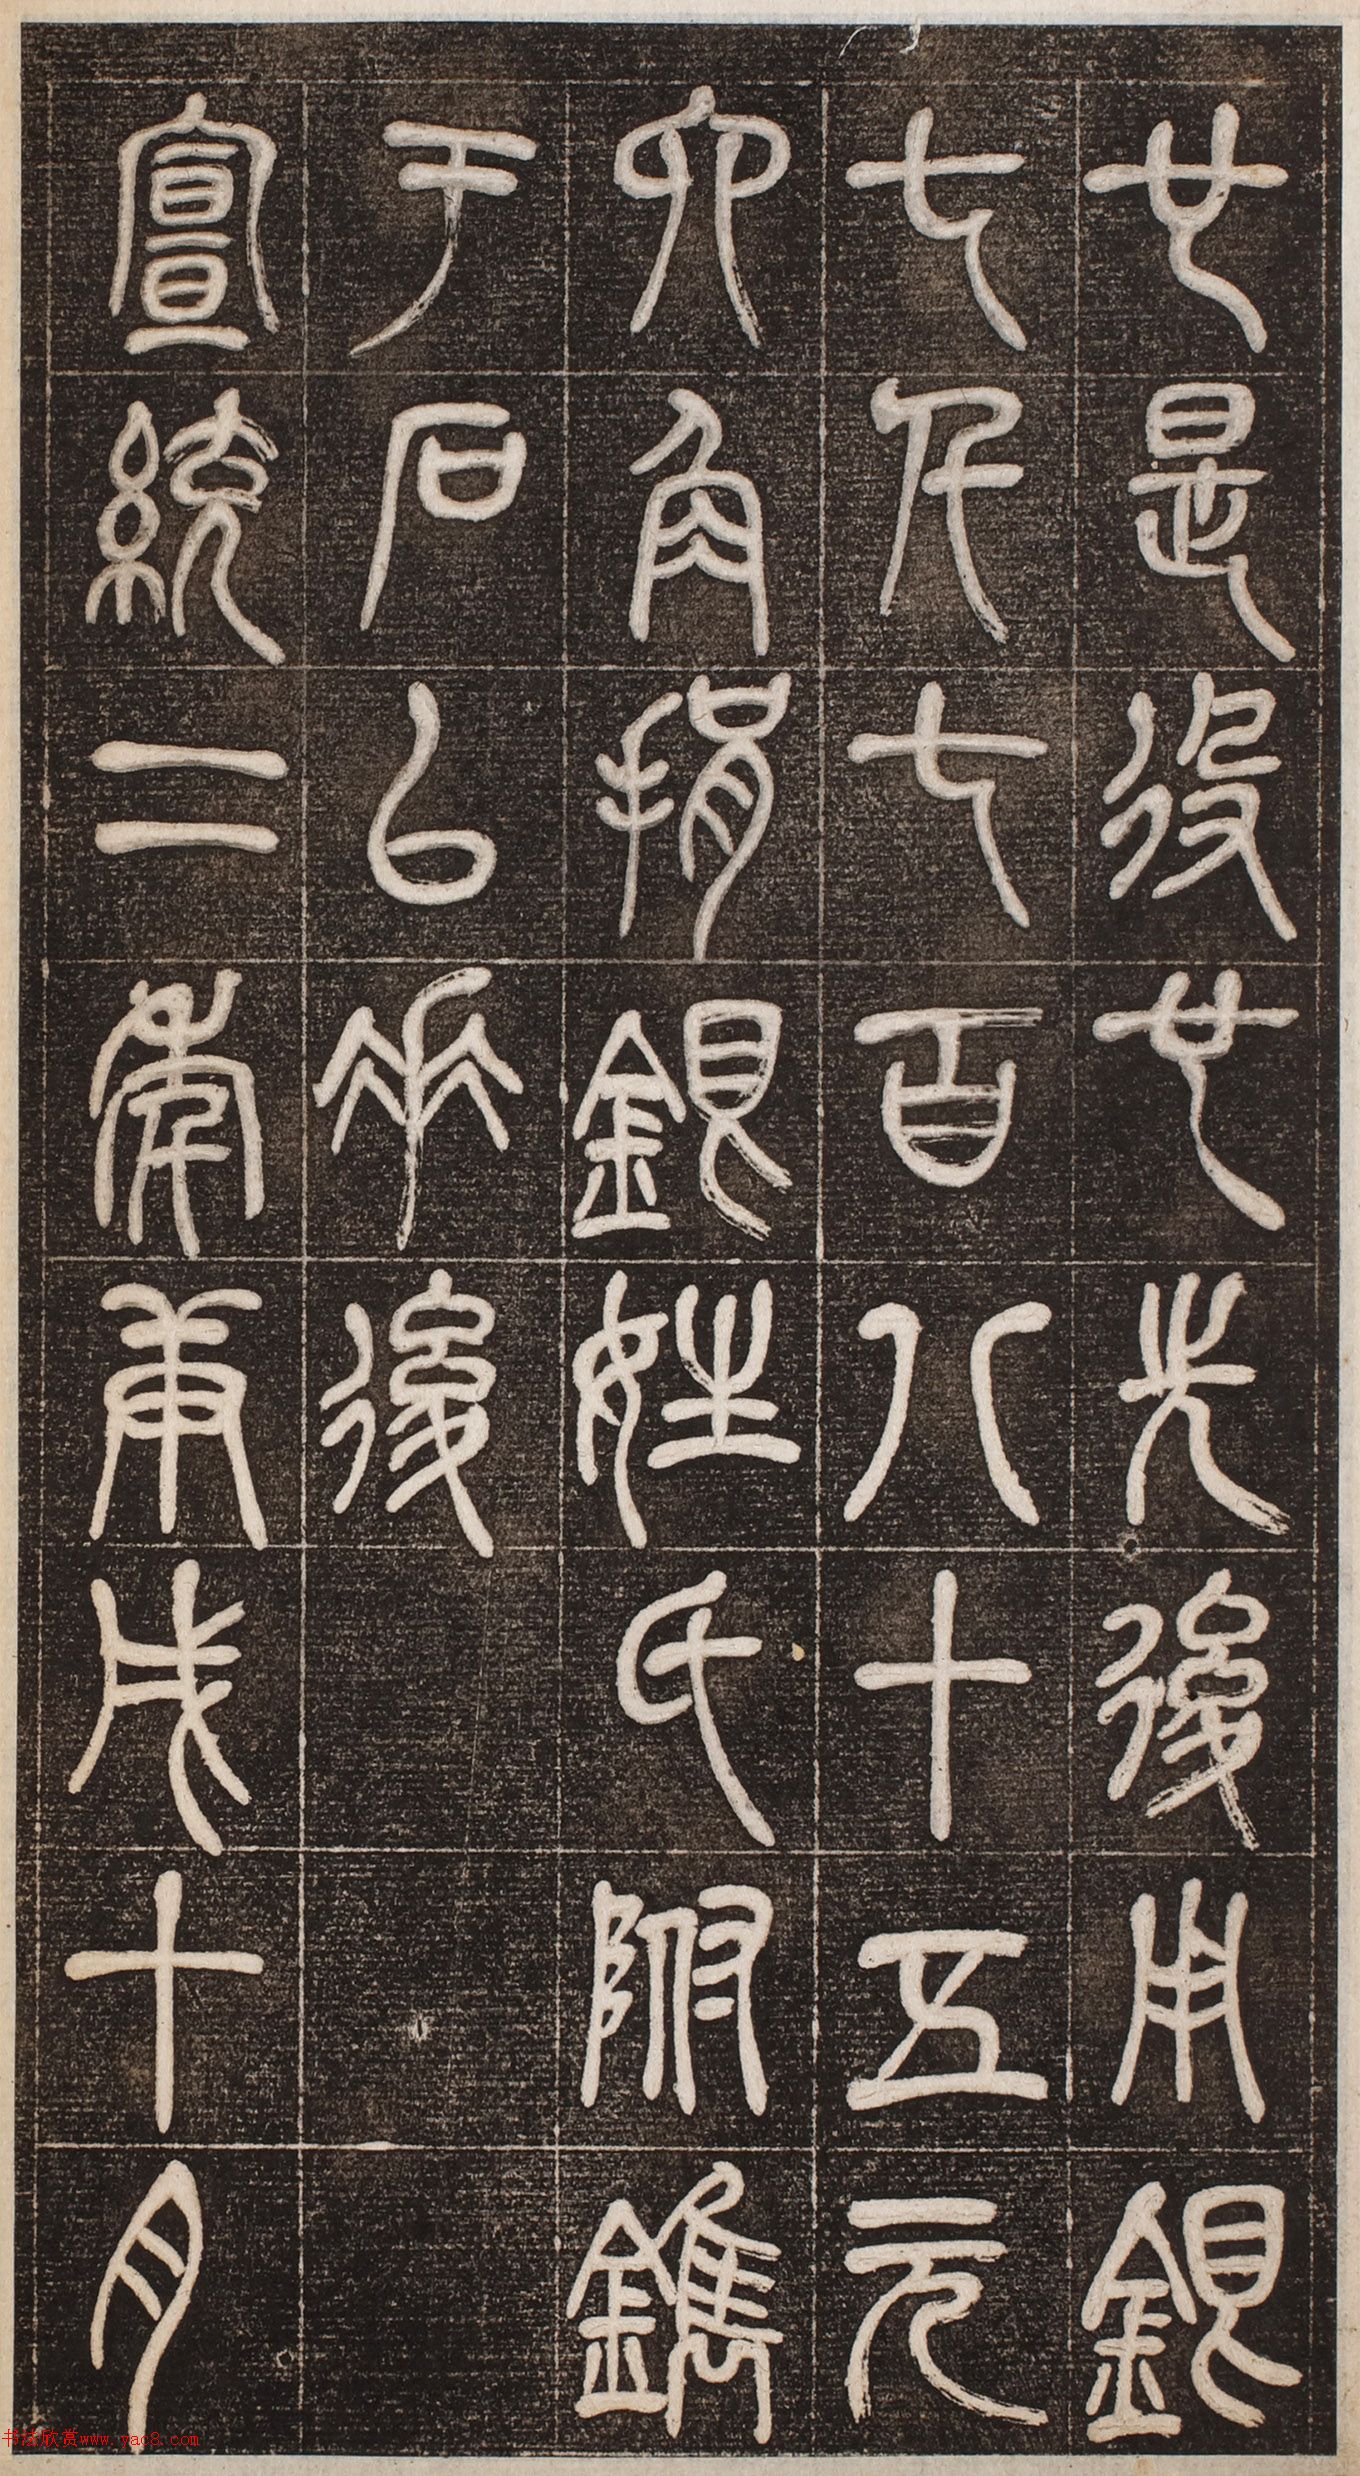 也是役也先後用銀
七千七百八十五元
六角捐銀姓氏附鐫
于石以垂後
宣統二年庚戌十月
书法欣赏www.yac8.com